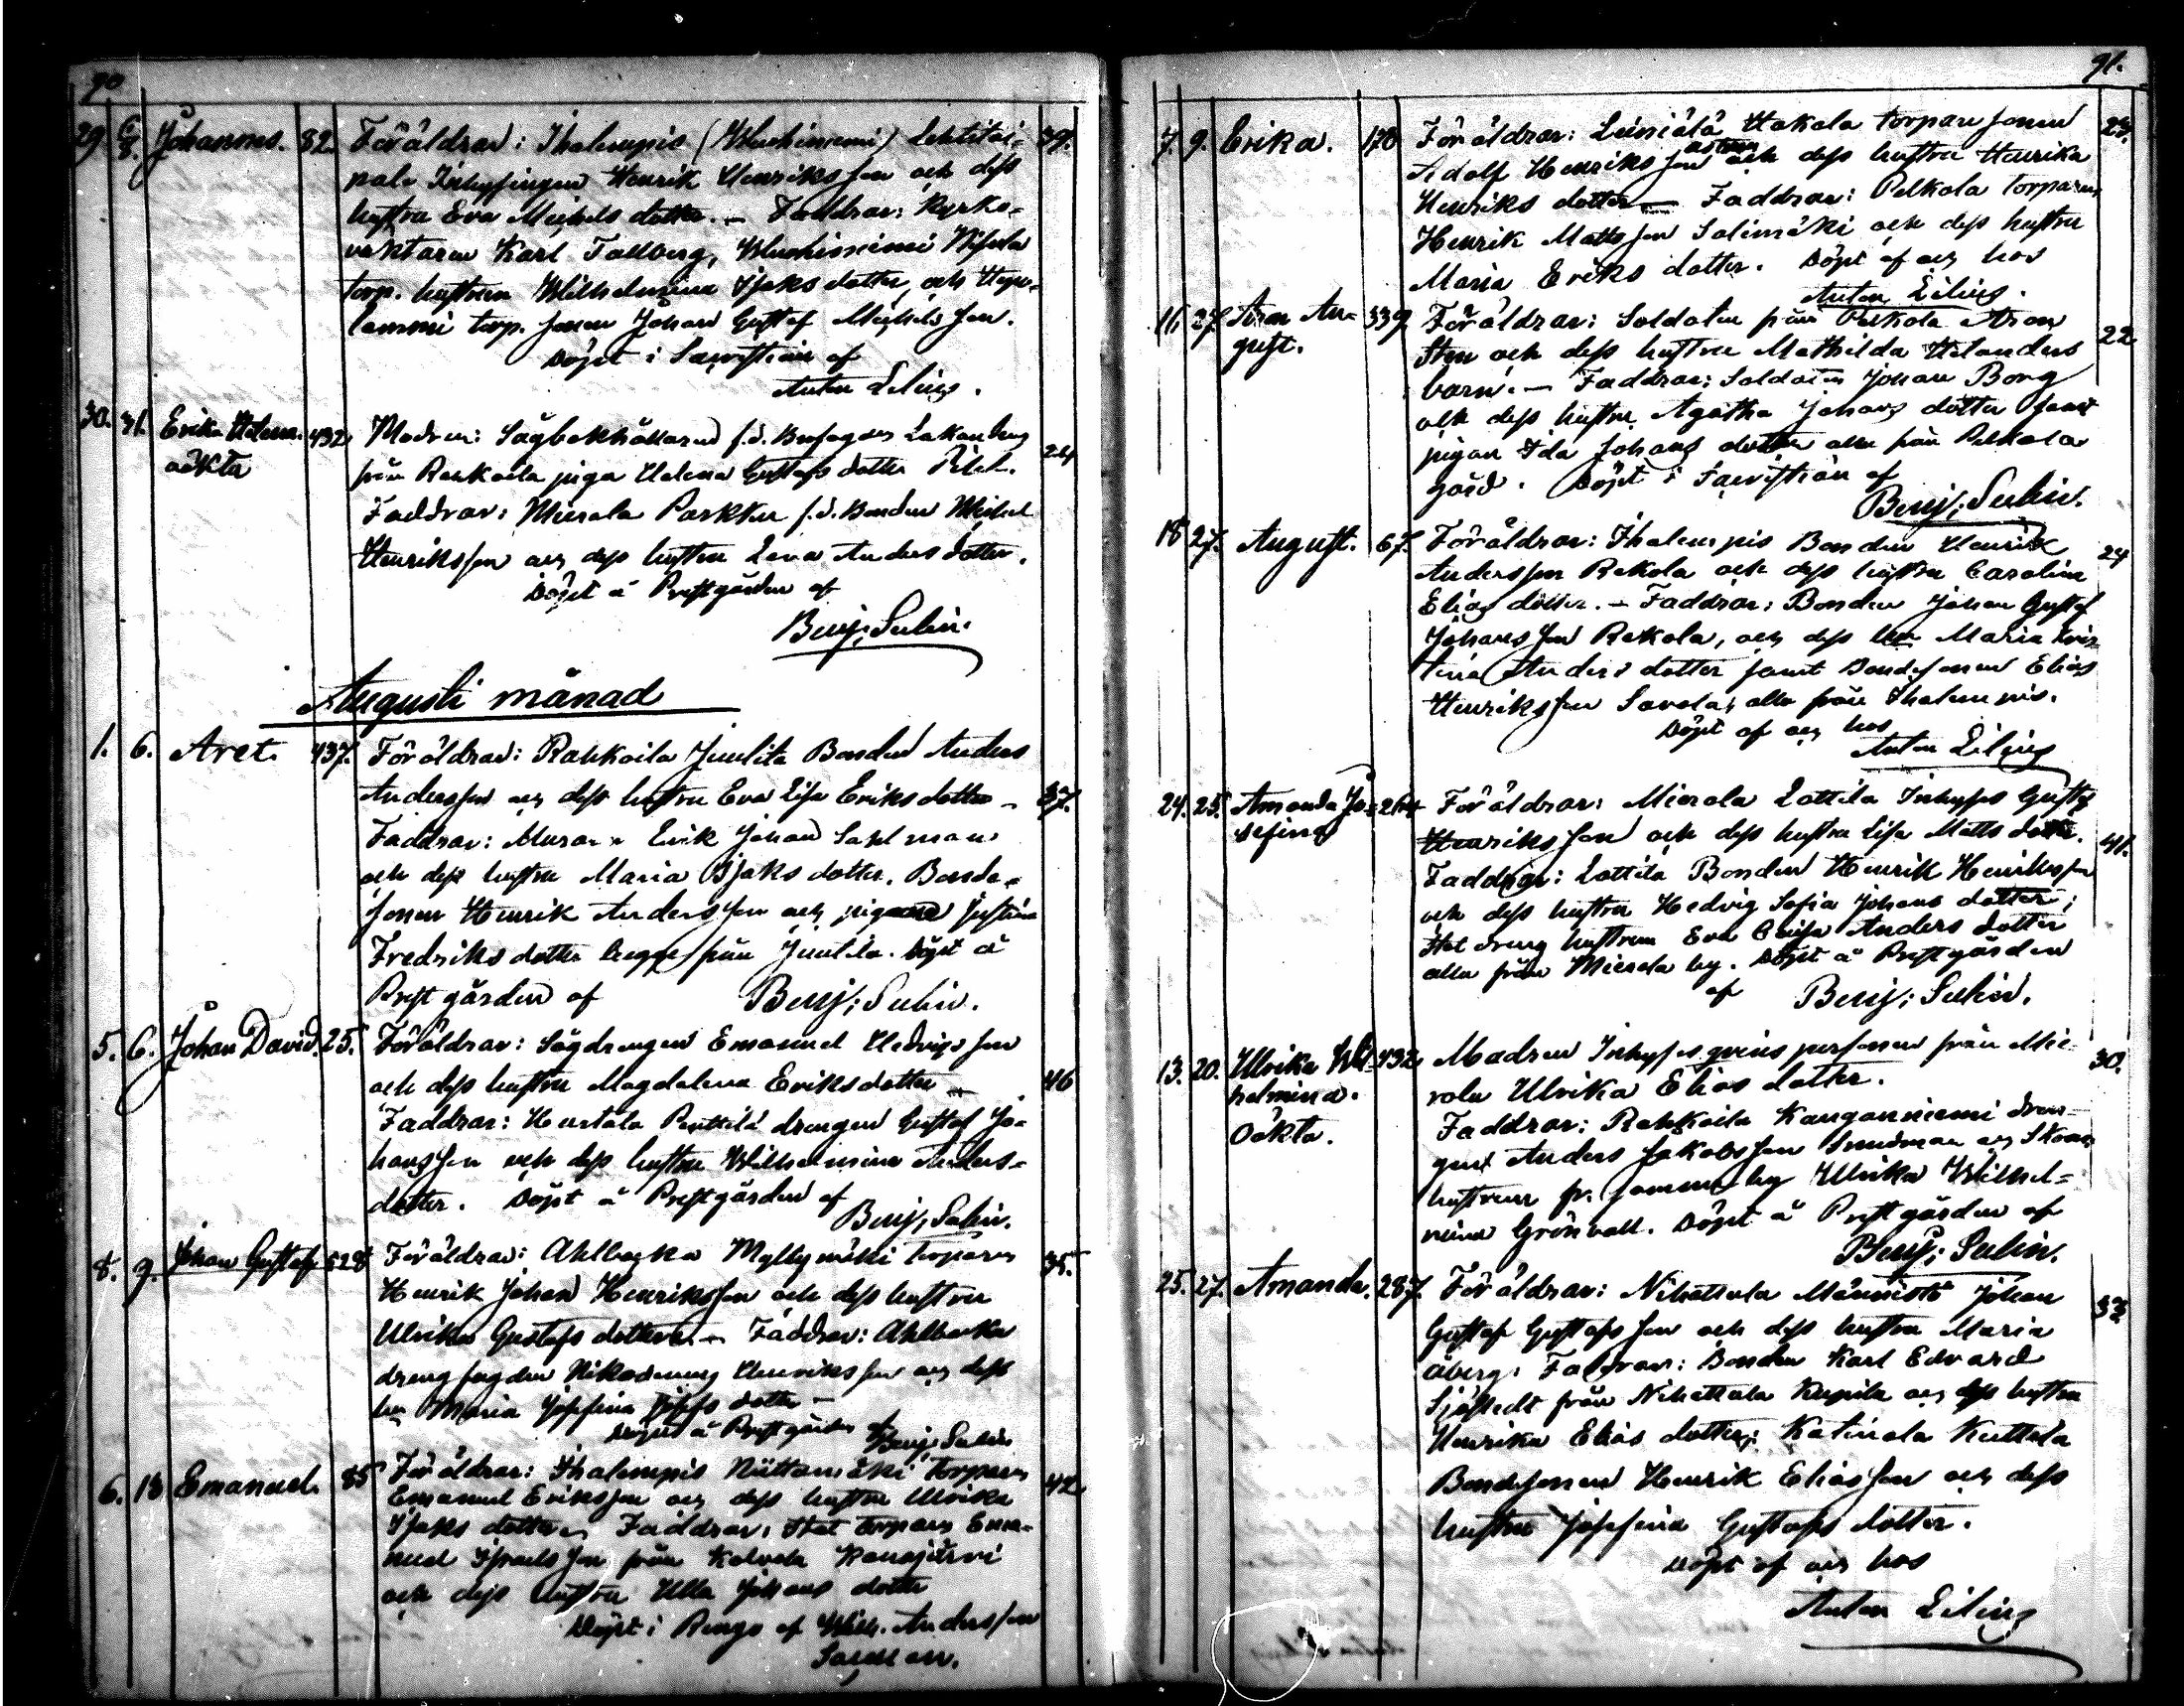 90
29. 6/8. Johannes. 82. Föräldrar: Ihalempis (Wluhiniemi) Lehtitai- 39.
pale Inhysingen Henrik Henriksson och dess
hustru Eva Michels dotter. — Faddrar: Kyrko-
vaktaren Karl Tallberg,
torp. hustrun Wilhelmina Isaks dotter, och
lammi torp. sonen Johan Gustaf Michelsson.
Döpt i Sacristian af
Anton Lilius.
30. 31. Erika Helena. 432. Modren: Sågbokhållaren f.d. 24
oäkta från Rahkoila piga Helena Gustafs dotter
Faddrar: Mierola Parkku f.d. Bonden Michel
Henriksson och dess hustru Lena Anders dotter.
Döpt å Prestgården af
Benj: Sulin.
Augusti månad
1. 6. Aret. 437. Föräldrar: Rahkoila Junlita Bonden Anders
Andersson och dess hustru Eva Lisa Eriks dotter — 37.
Faddrar: Murar. Erik Johan Sahlman
och dess hustru Maria Isaks dotter. Bonde-
sonen Henrik Andersson och pigan Justina
Fredriks dotter begge från Junlila. Döpt å
Prestgården af Benj: Sulin.
5. 6. Johan David. 25. Föräldrar: Sågdrengen Emanuel Hedvigsson
och dess hustru Magdalena Eriksdotter — 46
Faddrar: Hurtala Penttilä drengen Gustaf Jo-
hansson och dess hustru Wilhelmina Anders-
dotter. Döpt å Prestgården af
Benj: Sulin.
8. 9. Johan Gustaf 528 Föräldrar: Ahlbacka Myllymäki torparen 35.
Henrik Johan Henriksson och dess hustru
Ulrika Gustafs dotter. — Faddrar: Ahlbacka
drengfogden Nikodemus Henriksson och dess
hu Maria Josefina Josefs dotter —
Döpt å Prestgården af Benj: Sulin
6. 13 Emanuel. 85 Föräldrar: Ihalempis Niittumäki Torparen 42
Emanuel Eriksson och dess hustru Ulrika
Isaks dotter. Faddrar: Stat torparen Ema-
nuel Israelsson från Kalvola Kanajärvi
och dess hustru Ulla Johans dotter
Döpt i Rengo af Wilh. Andersson
91.
7. 9. Erika. 170 Föräldrar: Leiniälä Hakala torpare sonen 23.
Adolf Henriksson och dess hustru Henrika
Henriks dotter — Faddrar: Pelkola torparen
Henrik Mattsson Salimäki och dess hustru
Maria Eriks dotter. Döpt af och hos
Anton Lilius.
16 27. Aron Au- 339. Föräldrar: Soldaten från Pelkola Aron 22
gust. Sten och dess hustru Mathilda Helanders
barn. — Faddrar: Soldaten Johan Borg
och dess hustru Agatha Johans dotter samt
pigan Ida Johans dotter alla från Pelkola
gård. Döpt i Sacristian af
Benj: Sulin.
18 27. August. 67. Föräldrar: Ihalempis Bonden Henrik 24
Andersson Rekola och dess hustru Carolina
Elias dotter. — Faddrar: Bonden Johan Gustaf
Johansson Rekola, och dess hu Maria Kris-
tina Anders dotter samt Bondesonen Elias
Henriksson Savola, alla från Ihalempis.
Döpt af och hos
Anton Lilius
24. 25. Amanda Jo- 264 Föräldrar: Mierola Lottila Inhyses Gustaf
sefina Henriksson och dess hustru Lisa Matts dotter. 41.
Faddrar: Lottila Bonden Henrik Henriksson
och dess hustru Hedvig Sofia Johans dotter;
Stat dreng hustrun Eva Caisa Anders dotter
alla från Mierola by. Döpt å Prestgården
af Benj: Sulin.
13. 20. Ulrika Wil- 432 Modren Inhyses qvinspersonen från Mie- 30.
helmina. rola Ulrika Elias dotter.
Oäkta. Faddrar: Rahkoila Kanganniemi dren-
gen Anders Jakobsson och
hustrun fr. samma by Ulrika Wilhel-
mina Grönvall. Döpt å Prestgården af
Benj: Sulin.
25. 27. Amanda. 287. Föräldrar: Nihattula Männistö Johan 33
Gustaf Gustafsson och dess hustru Maria
Åberg. Faddrar: Bonden Karl Edvard
Sjöstedt från Nihattula Kupila och dess hustru
Henrika Elias dotter; Katinala Kuttila
Bondesonen Henrik Eliasson och dess
hustru Josefina Gustafs dotter.
Döpt af och hos
Anton Lilius